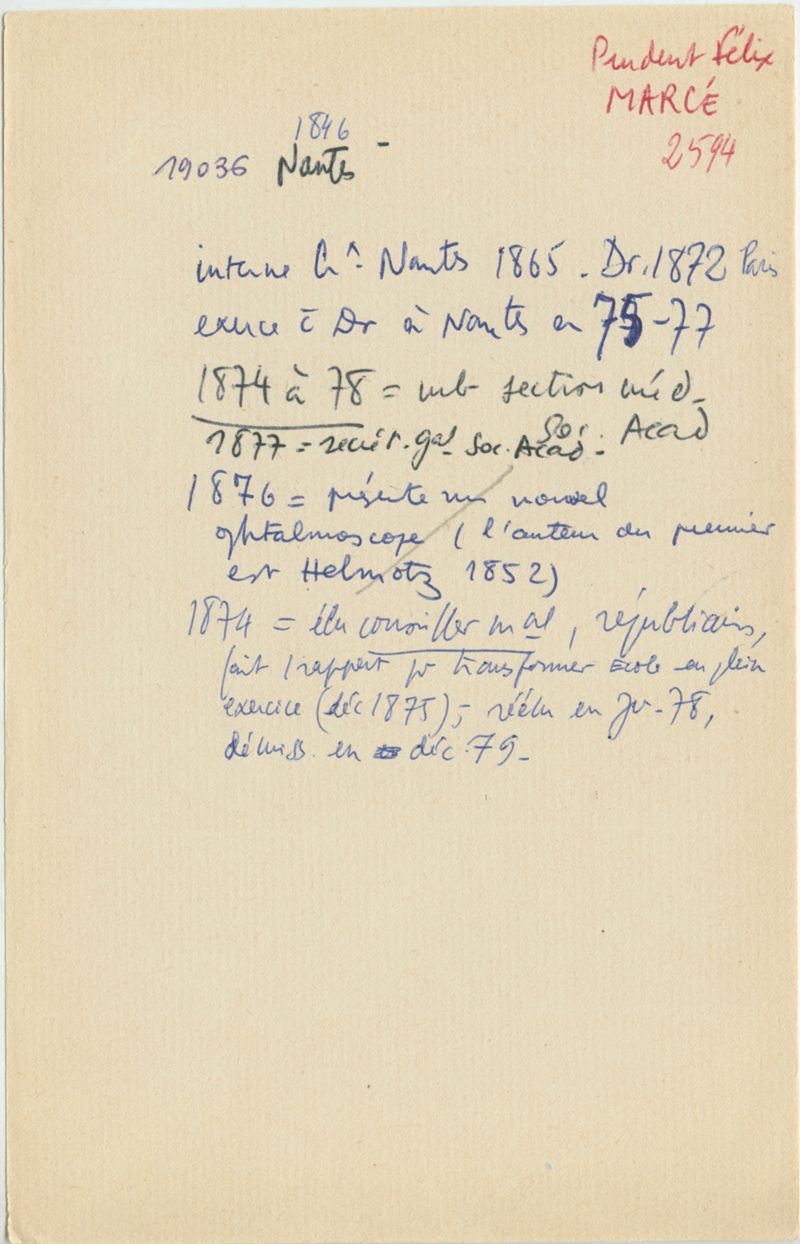 Prudent Félix
MARCÉ
2594
1846
19036 Nantes -
interne Nantes 1865. Dr. 1872 Paris
exerce c̄ Dr à Nantes en 75-77
1874 à 78 = mb section méd.
Soc. Acad
1877 = secrét. gal Soc. Acad.
1876 = présente un nouvel
ophtalmoscope (l'auteur du premier
est Helmotz 1852)
1874 = élu conseiller mal, républicains,
fait 1 rapport pr transformer Ecole en plein
exercice (déc 1875), - réélu en Jv-78,
démiss. en déc. 79-